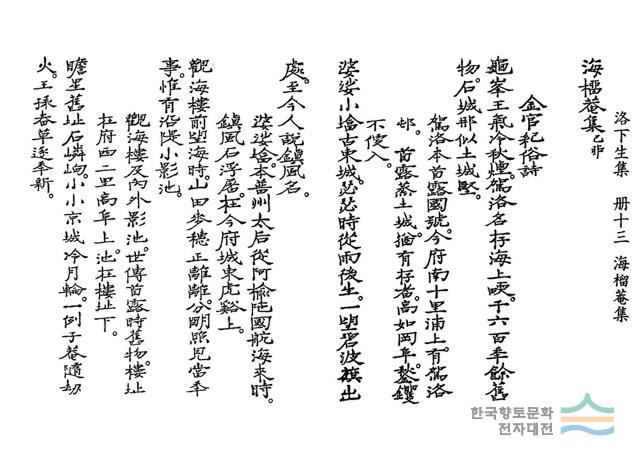 洛下生集 冊十三 海榴菴集
海榴菴集 乙卯
金官紀俗詩
龜峯王氣冷秋煙。駕洛名存海上咉。千六百年餘舊
物。石城那似土城堅。
駕洛本首露國號。今府南十里浦上。有駕洛
邨。首露蒸土城。猶有存者。高如岡阜。
不使入。
婆娑小塔古東城。時從雨後生。一朢碧波旗出
處。至今人說鎭風名。
婆娑塔。本普州太后從阿楡陁國航海來時。
鎭風石浮屠。在今府城東虎谿上。
觀海樓前朢海時。山田麥穗正離離。分明照見當年
事。惟有沿隄小影池。
觀海樓及內外影池。世傳首露時舊物。樓址
在府西二里高阜上。池在樓址下。
瞻星舊址石嶙峋。小小京城冷月輪。一例子菴隨劫
火。王琢春草逐年新。
한국향토문화
전자대전